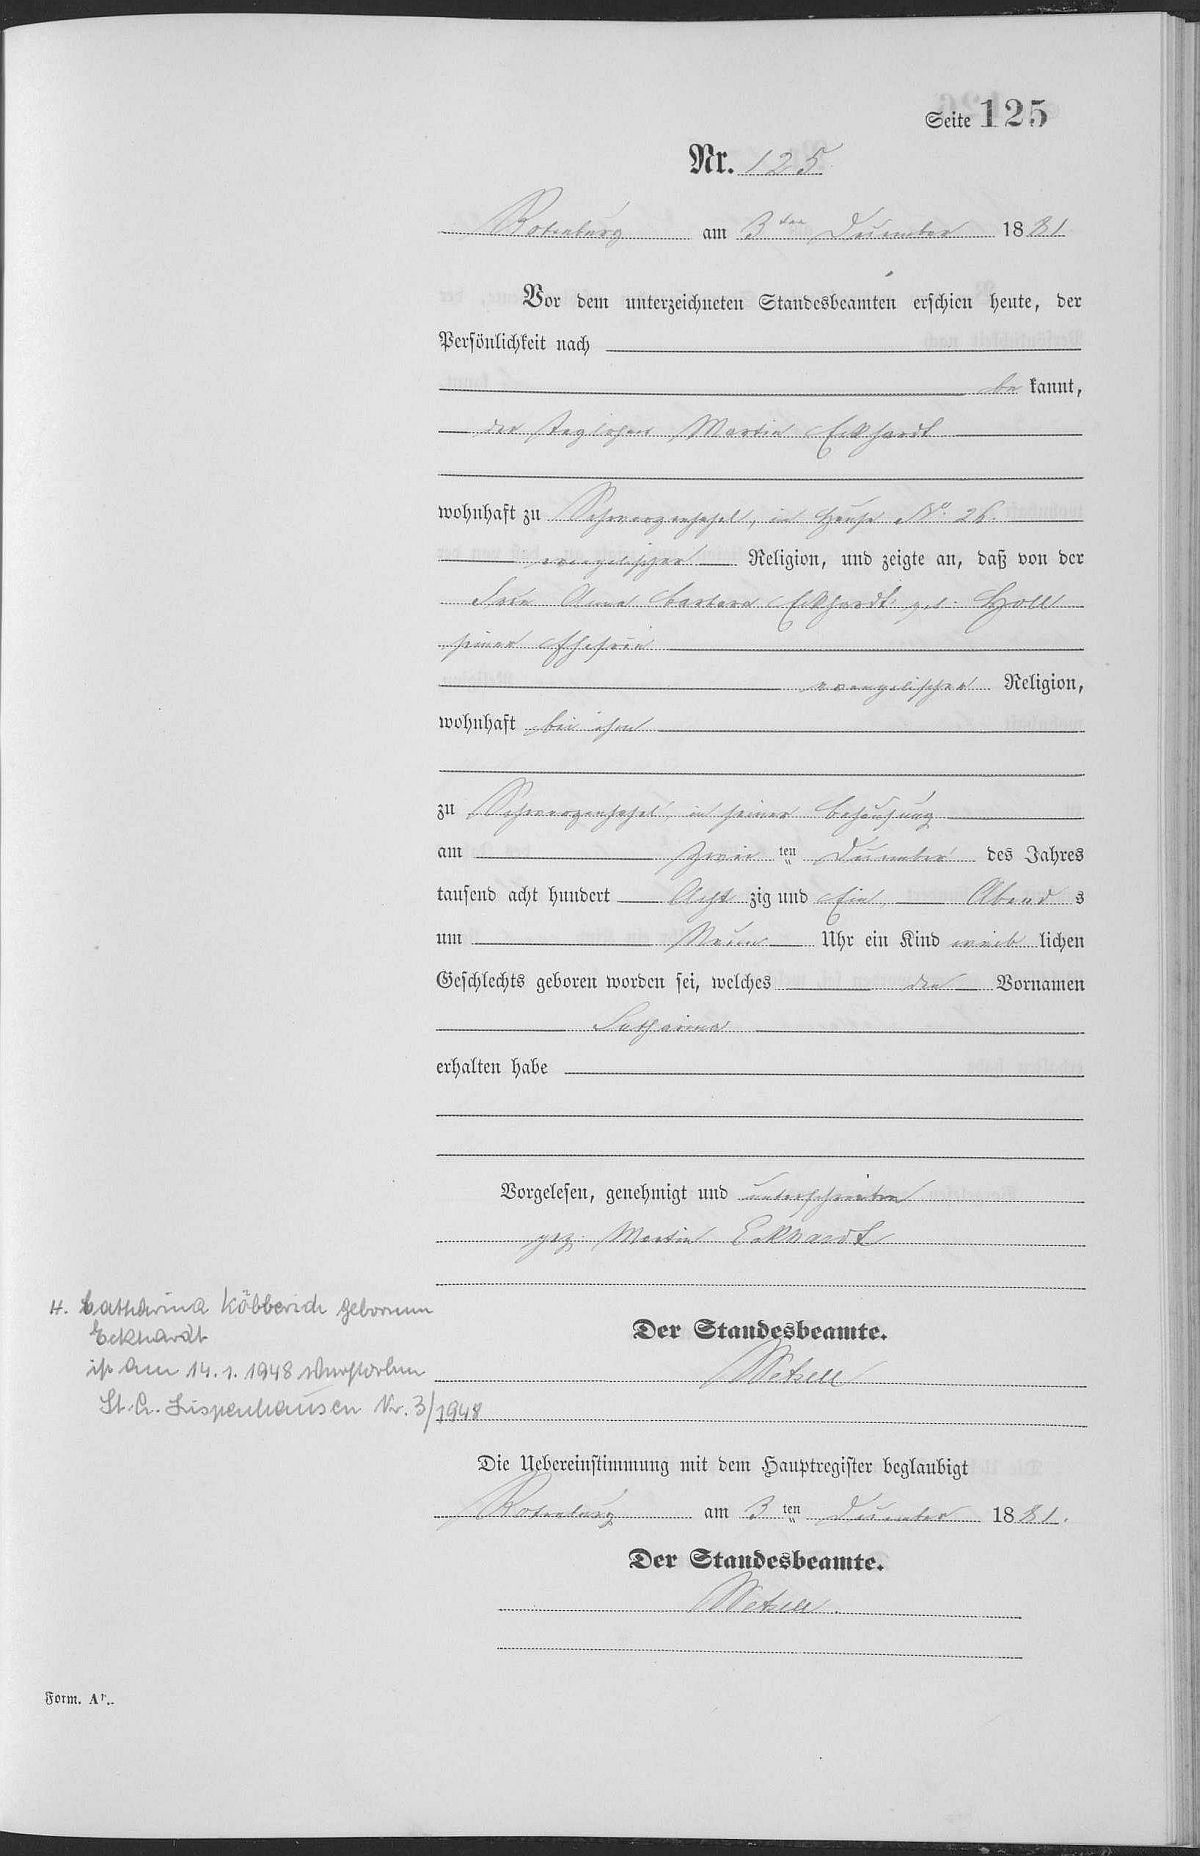 Seite 125
Nr. 125
Rotenburg am 3ten December 1881
Vor dem unterzeichneten Standesbeamten erschien heute, der
Persönlichkeit nach
be kannt,
der Taglöhner Martin Eckhardt
wohnhaft zu Schwarzenhasel, im Hause No. 26.
evangelischer Religion, und zeigte an, daß von der
Frau Anna Barbara Eckhardt geb. Holl
seiner Ehefrau
evangelischer Religion,
wohnhaft bei ihm
zu Schwarzenhasel, in seiner Behausung
am Zwei ten December des Jahres
tausend acht hundert Acht zig und Ein Abend s
um Neun Uhr ein Kind weib lichen
Geschlechts geboren worden sei, welches den Vornamen
Catharina
erhalten habe
Vorgelesen, genehmigt und unterschrieben
gez. Martin Eckhardt
H. Catharina Köbberich geborenen
Eckhardt
ist am 14.1.1948 verstorben
St.A. Lispenhausen Nr. 3/1948
Der Standesbeamte.
Die Uebereinstimmung mit dem Hauptregister beglaubigt
Rotenburg am 3 ten December 1881.
Der Standesbeamte.
Form. A